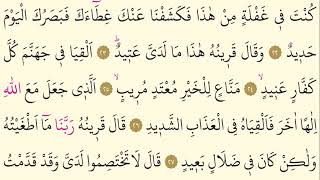 كُنْتَ فٖي غَفْلَةٍ مِنْ هٰذَا فَكَشَفْنَا عَنْكَ غِطَٓاءَكَ فَبَصَرُكَ الْيَوْمَ
حَدٖيدٌ ﴿٢٢﴾ وَقَالَ قَرٖينُهُ هٰذَا مَا لَدَيَّ عَتٖيدٌۜ ﴿٢٣﴾ اَلْقِيَا فٖي جَهَنَّمَ كُلَّ
كَفَّارٍ عَنٖيدٍۙ ﴿٢٤﴾ مَنَّاعٍ لِلْخَيْرِ مُعْتَدٍ مُرٖيبٍۙ ﴿٢٥﴾ اَلَّذٖي جَعَلَ مَعَ اللّٰهِ
اِلٰهاً اٰخَرَ فَاَلْقِيَاهُ فِي الْعَذَابِ الشَّدٖيدِ ﴿٢٦﴾ قَالَ قَرٖينُهُ رَبَّنَا مَٓا اَطْغَيْتُهُ
وَلٰكِنْ كَانَ فٖي ضَلَالٍ بَعٖيدٍ ﴿٢٧﴾ قَالَ لَا تَخْتَصِمُوا لَدَيَّ وَقَدْ قَدَّمْتُ